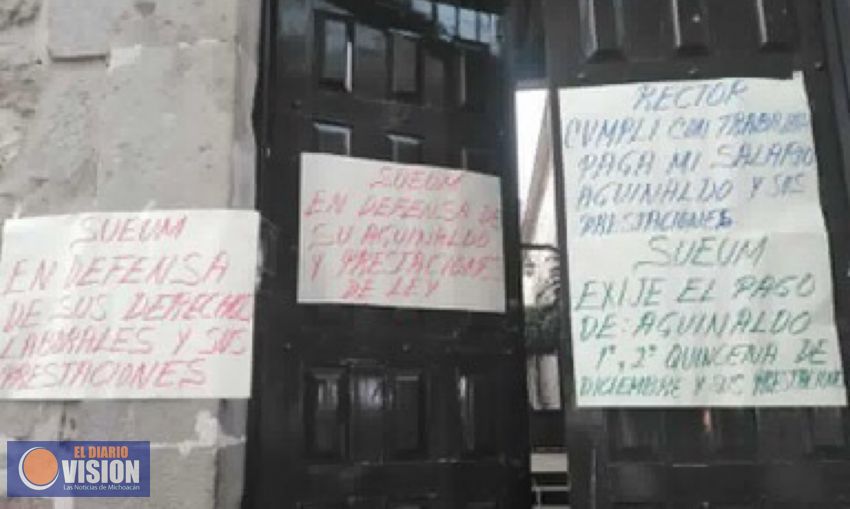 SUEUM
EN DEFENSA
DE SUS DERECHOS
LABORALES Y SUS
PRESTACIONES
SUEUM
EN DEFENSA DE
SU AGUINALDO
Y PRESTACIONES
DE LEY
RECTOR
CUMPLI CON TRABAJA
PAGA MI SALARIO
AGUINALDO Y SUS
PRESTACIONES
SUEUM
EXIJE EL PAGO
DE: AGUINALDO
1ª, 2ª QUINCENA DE
DICIEMBRE Y SUS PRESTACIONES
EL DIARIO
VISION
Las Noticias de Michoacán